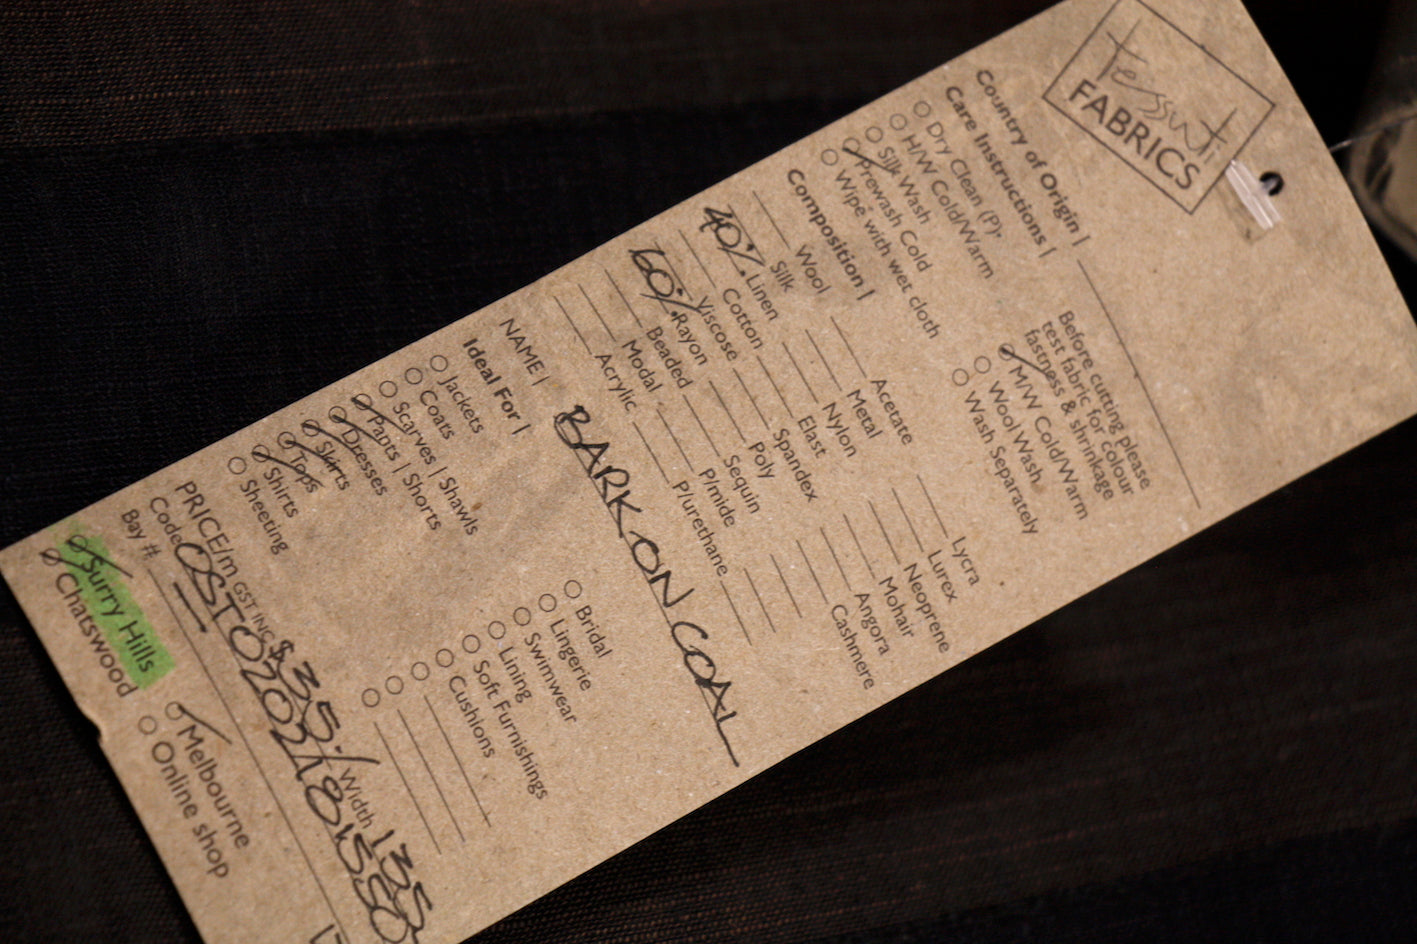 tessuti
FABRICS
Country of Origin |
Care Instructions |
Dry Clean (P)
H/W Cold/Warm
Silk Wash
Prewash Cold
Wipe with wet cloth
Before cutting please
test fabric for colour
fastness & shrinkage
M/W Cold/Warm
Wool Wash
Wash Separately
Composition |
Wool
Silk
40% Linen
Cotton
Viscose
60% Rayon
Beaded
Modal
Acrylic
Acetate
Metal
Nylon
Elast
Spandex
Poly
Sequin
P/mide
P/urethane
Lycra
Lurex
Neoprene
Mohair
Angora
Cashmere
NAME | BARK ON COAL
Ideal For |
Jackets
Coats
Scarves | Shawls
Pants | Shorts
Dresses
Skirts
Tops
Shirts
Sheeting
Bridal
Lingerie
Swimwear
Lining
Soft Furnishings
Cushions
PRICE/m GST INC $35 Width 135
Code
Bay #
Surry Hills
Chatswood
Melbourne
Online shop